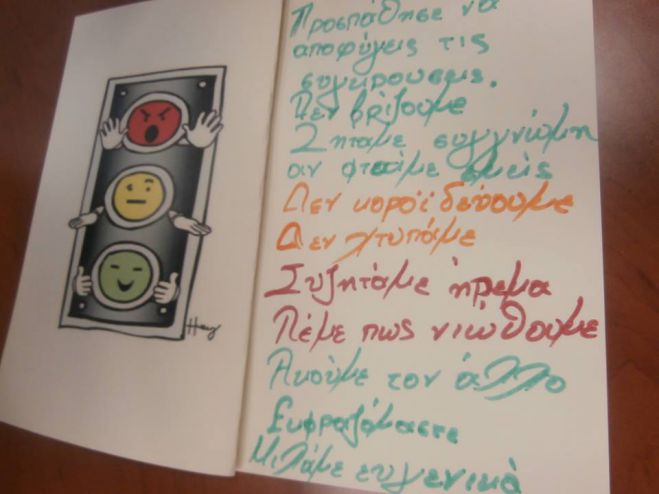 Προσπάθησε να
αποφύγεις τις
συγκρούσεις.
Δεν βρίζουμε
Ζητάμε συγγνώμη
αν φταίμε εμείς
Δεν κοροϊδεύουμε
Δεν χτυπάμε
Συζητάμε ήρεμα
Λέμε πως νιώθουμε
Ακούμε τον άλλο
Εκφραζόμαστε
Μιλάμε ευγενικά